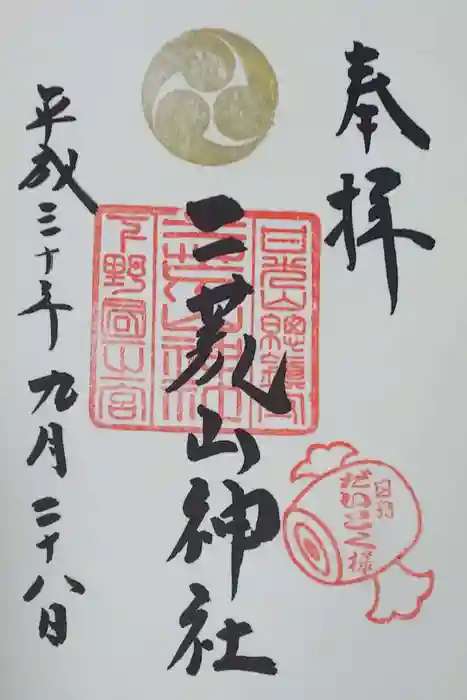 奉拝
二荒山神社
平成三十年九月二十八日
日光山總鎮守
二荒山神社
下野國一宮
日光
だいこく様